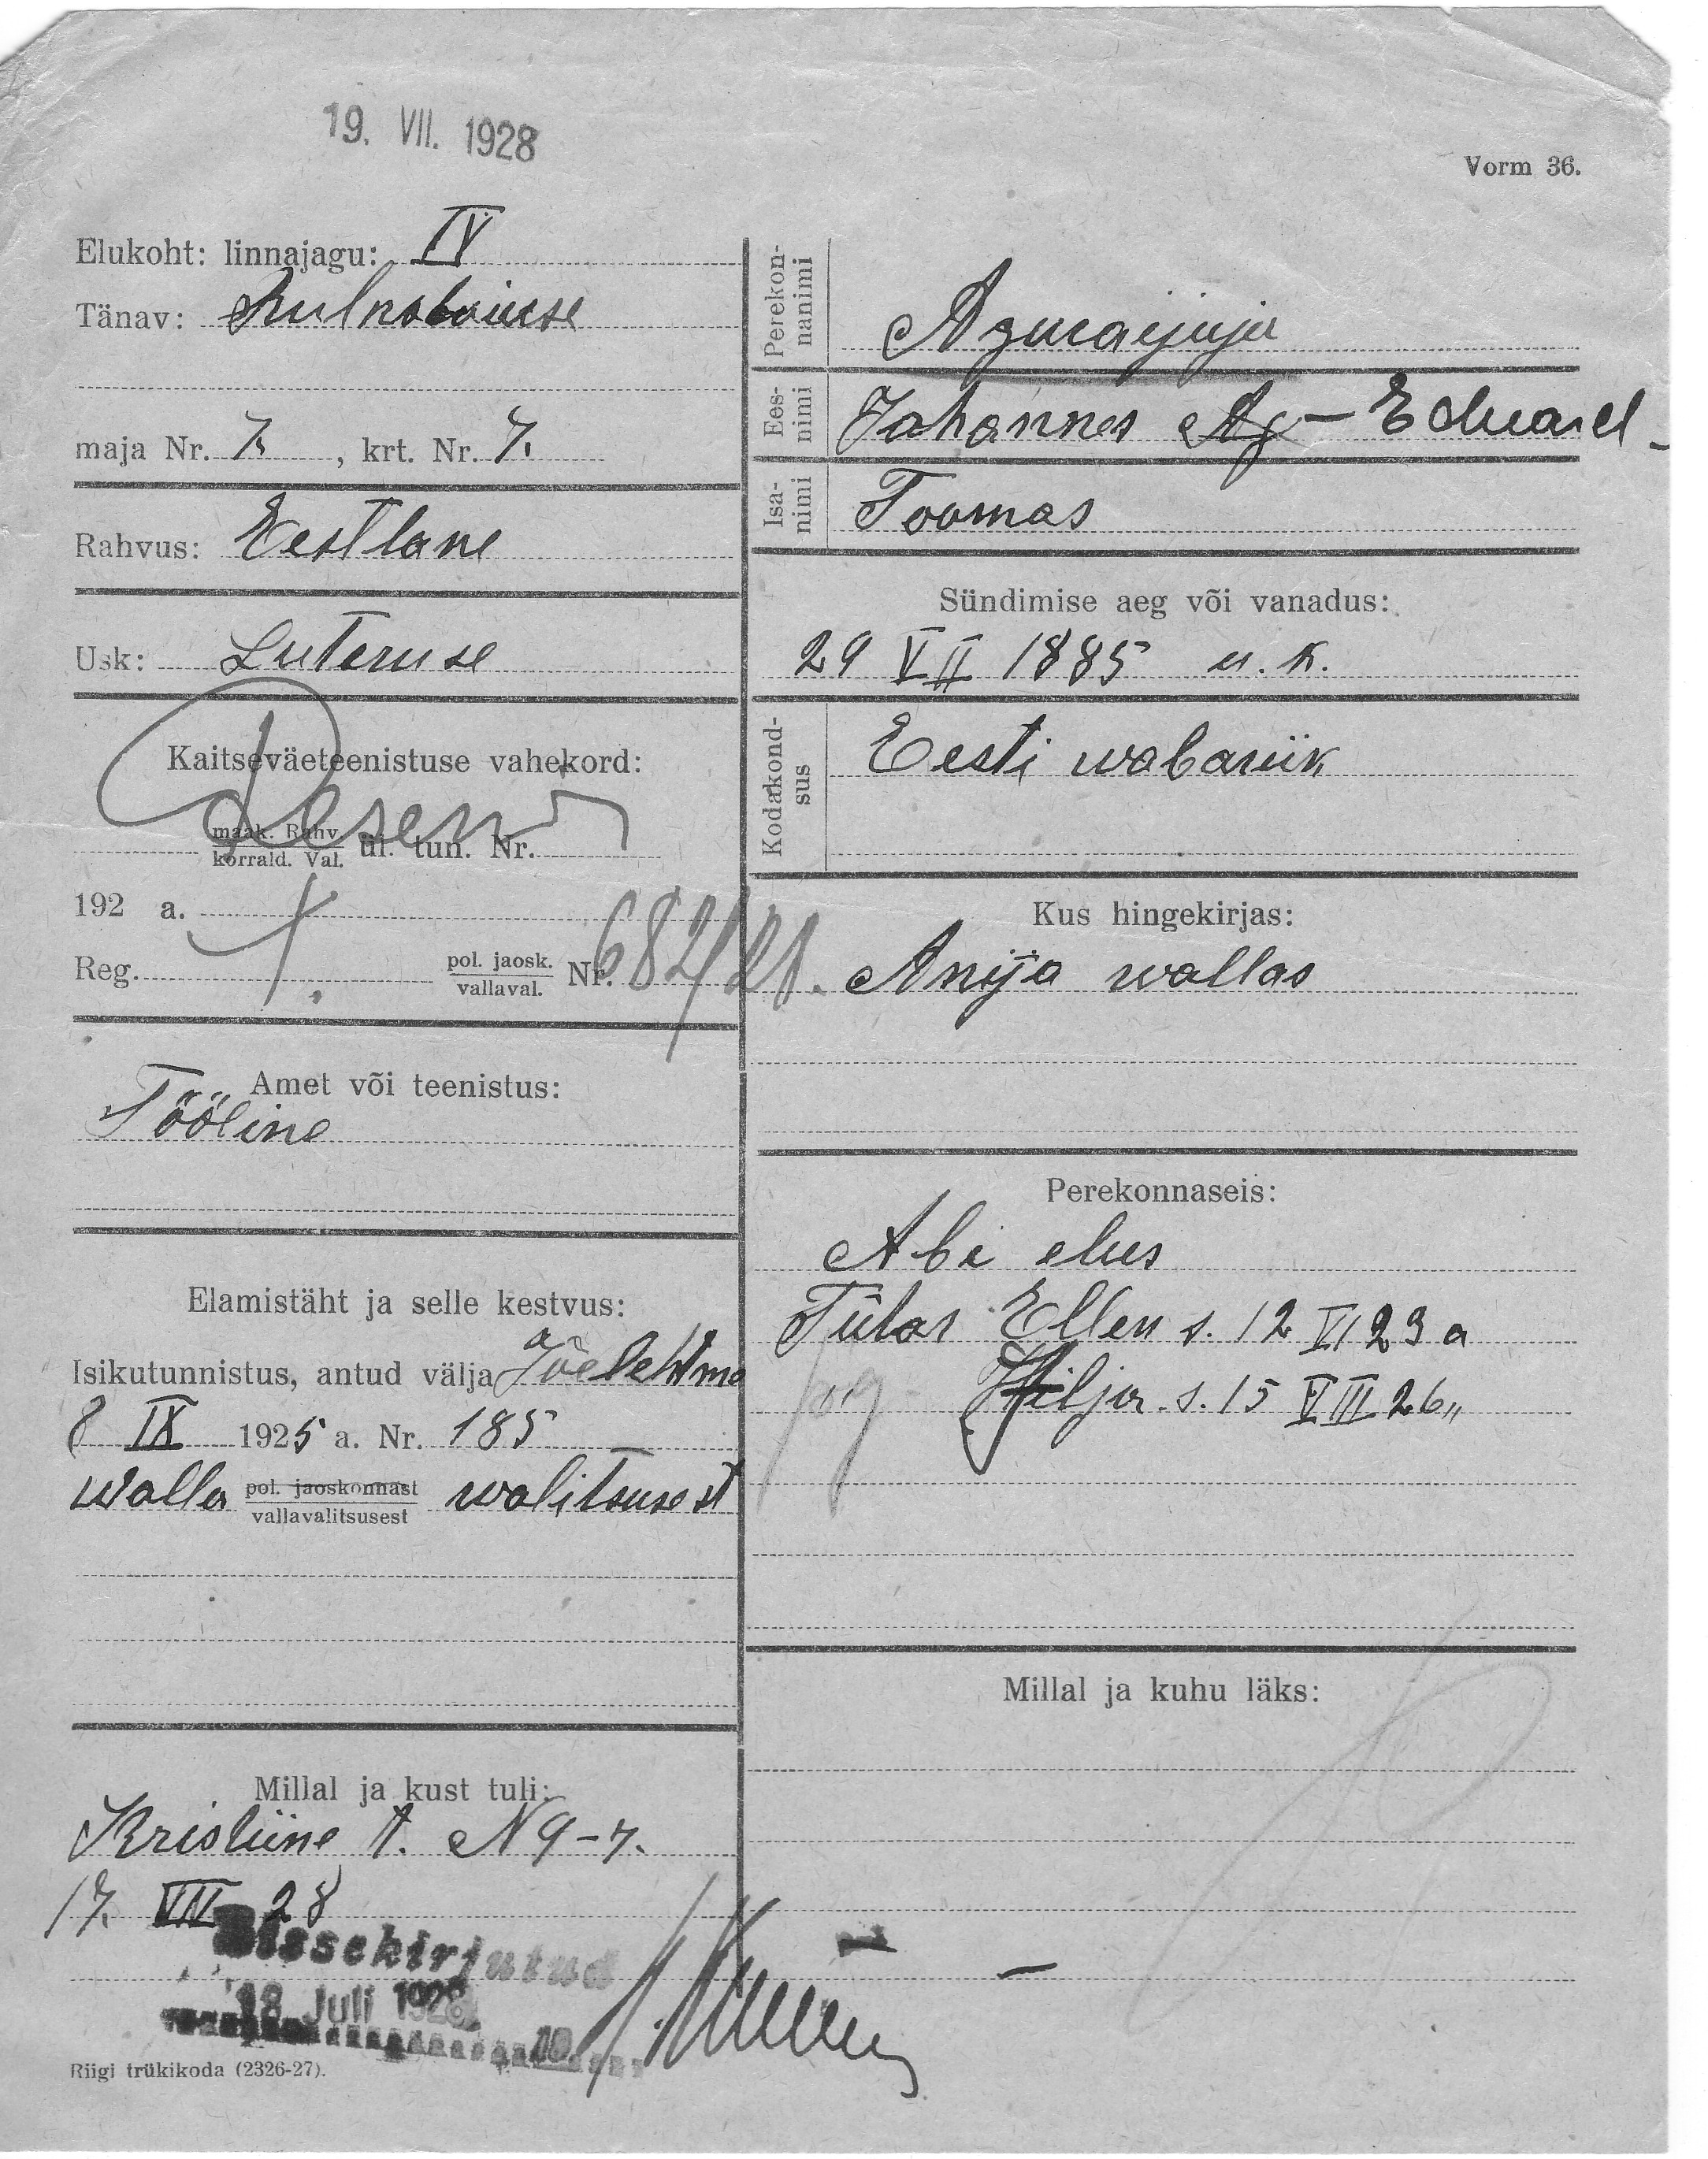 19. VII. 1928
Vorm 36.
Elukoht: linnajagu: IV
Tänav:
maja Nr. 7. , krt. Nr. 7.
Rahvus: Eestlane
Usk: Luteruse
Kaitseväeteenistuse vahekord:
Reserv
maak. Rahv.
korrald. Val. ül. tun. Nr.
192 a.
Reg. pol. jaosk.
vallaval. Nr. 682/21.
Amet või teenistus:
Tööline
Elamistäht ja selle kestvus:
Isikutunnistus, antud välja Jõelehtme
8 IX 1925 a. Nr. 185
Walla pol. jaoskonnast
vallavalitsusest walitsusest
Millal ja kust tuli:
Kristiine t. N 9-7.
17. VII 28
Sissekirjutud
18 Juli 1928
Riigi trükikoda (2326-27).
Perekonnanimi
Eesnimi Johannes Ag- Eduard
Isanimi Toomas
Sündimise aeg või vanadus:
29 VII 1885 u. k.
Kodakondsus Eesti wabariik
Kus hingekirjas:
Anija wallas
Perekonnaseis:
Abi elus
Tütar Ellen s. 12 VI 23 a
Hilja s. 15 VIII 26 „
Millal ja kuhu läks: